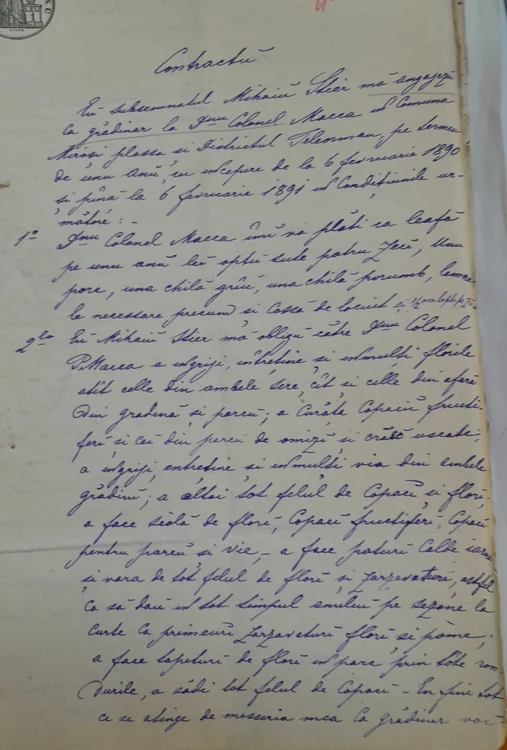 Contractŭ
Eŭ subsemnatul Mihaiŭ Stier mă angageză
ca grădinar la Dnu Colonel Macca în Comuna
Mirosi plassa si districtul Teleorman, pe termen
de unu anŭ, cu începere de la 6 fevruarie 1890
si pînă la 6 fevruarie 1891 în Condițiunile ur-
mătóre: -
1º Dnu Colonel Macca îmĭ va plăti ca leafă
pe unu anŭ leĭ optŭ sute patru zecĭ, unu
porc, una chilă grîŭ, una chilă porumb, lemne
le necessare precum si cassă de locuit
2lea Eŭ Mihaiŭ Stier mă obligŭ către Dnu Colonel
P. Macca a îngriji, întreține si înmulți florile
atît celle din ambele sere, cît si celle din afară
din gradina si parcŭ; a curăți copaciĭ fructi-
ferĭ si ceĭ din parcŭ de omiză si crăci uscate;
a îngriji, entreține si înmulți via din ambele
grădinĭ; a altoi tot felul de Copacĭ si florĭ,
a face scólă de florĭ, Copacĭ fructiferĭ, Copacĭ
pentru parcŭ si vie, - a face paturĭ calde iarna
si vara de tot felul de florĭ si zarzavaturĭ, astfel
ca să daŭ în tot timpul anului pe sezóne la
curte ca primeurĭ zarzavaturĭ florĭ, si póme;
a face tapeturĭ de florĭ în parc prin tóte ron-
durile, a sădi tot felul de Copacĭ - En fine tot
ce se atinge de messeria mea ca grădinar voĭ